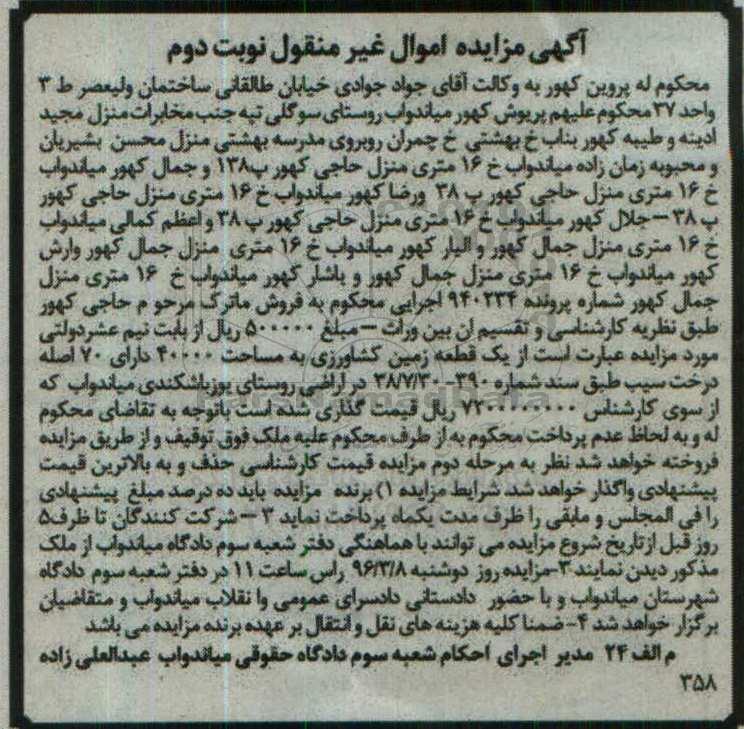 آگهی مزایده اموال غیر منقول نوبت دوم
محکوم له پروین کهور به وکالت آقای جواد جوادی خیابان طالقانی ساختمان ولیعصر ط ۳
واحد ۳۷ محکوم علیهم پریوش کهور میاندواب روستای سوگلی تپه جنب مخابرات منزل مجید
ادینه و طیبه کهور بناب خ بهشتی خ چمران روبروی مدرسه بهشتی منزل محسن بشیریان
و محبوبه زمان زاده میاندواب خ ۱۶ متری منزل حاجی کهور پ۱۳۸ و جمال کهور میاندواب
خ ۱۶ متری منزل حاجی کهور پ ۳۸ ورضا کهور میاندواب خ ۱۶ متری منزل حاجی کهور
پ ۳۸ – جلال کهور میاندواب خ ۱۶ متری منزل حاجی کهور پ ۳۸ و اعظم کمالی میاندواب
خ ۱۶ متری منزل جمال کهور و الیار کهور میاندواب خ ۱۶ متری منزل جمال کهور وارش
کهور میاندواب خ ۱۶ متری منزل جمال کهور و یاشار کهور میاندواب خ ۱۶ متری منزل
جمال کهور شماره پرونده ۹۴۰۲۳۴ اجرایی محکوم به فروش ماترک مرحو م حاجی کهور
طبق نظریه کارشناسی و تقسیم آن بین وراث – مبلغ ۵۰۰۰۰۰ ریال از بابت نیم عشردولتی
مورد مزایده عبارت است از یک قطعه زمین کشاورزی به مساحت ۴۰۰۰۰ دارای ۷۰ اصله
درخت سیب طبق سند شماره ۳۹۰-۳۸/۷/۳۰ در اراضی روستای یوزباشکندی میاندواب که
از سوی کارشناس ۷۲۰۰۰۰۰۰۰۰ ریال قیمت گذاری شده است باتوجه به تقاضای محکوم
له و به لحاظ عدم پرداخت محکوم به از طرف محکوم علیه ملک فوق توقیف و از طریق مزایده
فروخته خواهد شد نظر به مرحله دوم مزایده قیمت کارشناسی حذف و به بالاترین قیمت
پیشنهادی واگذار خواهد شد. شرایط مزایده ۱) برنده مزایده باید ده درصد مبلغ پیشنهادی
را فی المجلس و مابقی را ظرف مدت یکماه پرداخت نماید ۲ – شرکت کنندگان تا ظرف۵
روز قبل ازتاریخ شروع مزایده می توانند با هماهنگی دفتر شعبه سوم دادگاه میاندواب از ملک
مذکور دیدن نمایند ۳-مزایده روز دوشنبه ۹۶/۳/۸ راس ساعت ۱۱ در دفتر شعبه سوم دادگاه
شهرستان میاندواب و با حضور دادستانی دادسرای عمومی وا نقلاب میاندواب و متقاضیان
برگزار خواهد شد ۴- ضمنا کلیه هزینه های نقل و انتقال بر عهده برنده مزایده می باشد
م الف ۲۴ مدیر اجرای احکام شعبه سوم دادگاه حقوقی میاندواب عبدالعلی زاده
۳۵۸